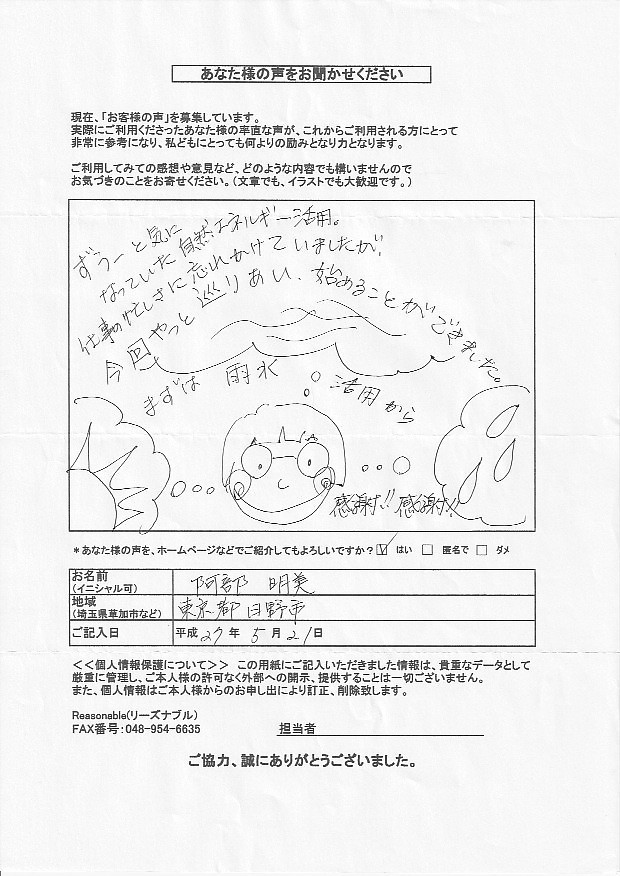 あなた様の声をお聞かせください
現在、「お客様の声」を募集しています。
実際にご利用くださったあなた様の率直な声が、これからご利用される方にとって
非常に参考になり、私どもにとっても何よりの励みとなり力となります。
ご利用してみての感想や意見など、どのような内容でも構いませんので
お気づきのことをお寄せください。(文章でも、イラストでも大歓迎です。)
ずうーっと気に
なっていた自然エネルギー活用。
仕事の忙しさに忘れかけていましたが、
今回やっと巡りあい、始めることができました。
まずは 雨水 活用から
感謝!! 感謝!!
*あなた様の声を、ホームページなどでご紹介してもよろしいですか? ☑ はい □ 匿名で □ ダメ
お名前
(イニシャル可)
阿部 明美
地域
(埼玉県草加市など)
東京都 日野市
ご記入日 平成 27 年 5 月 21 日
<<個人情報保護について>> この用紙にご記入いただきました情報は、貴重なデータとして
厳重に管理し、ご本人様の許可なく外部への開示、提供することは一切ございません。
また、個人情報はご本人様からのお申し出により訂正、削除致します。
Reasonable(リーズナブル)
FAX番号:048-954-6635 担当者
ご協力、誠にありがとうございました。